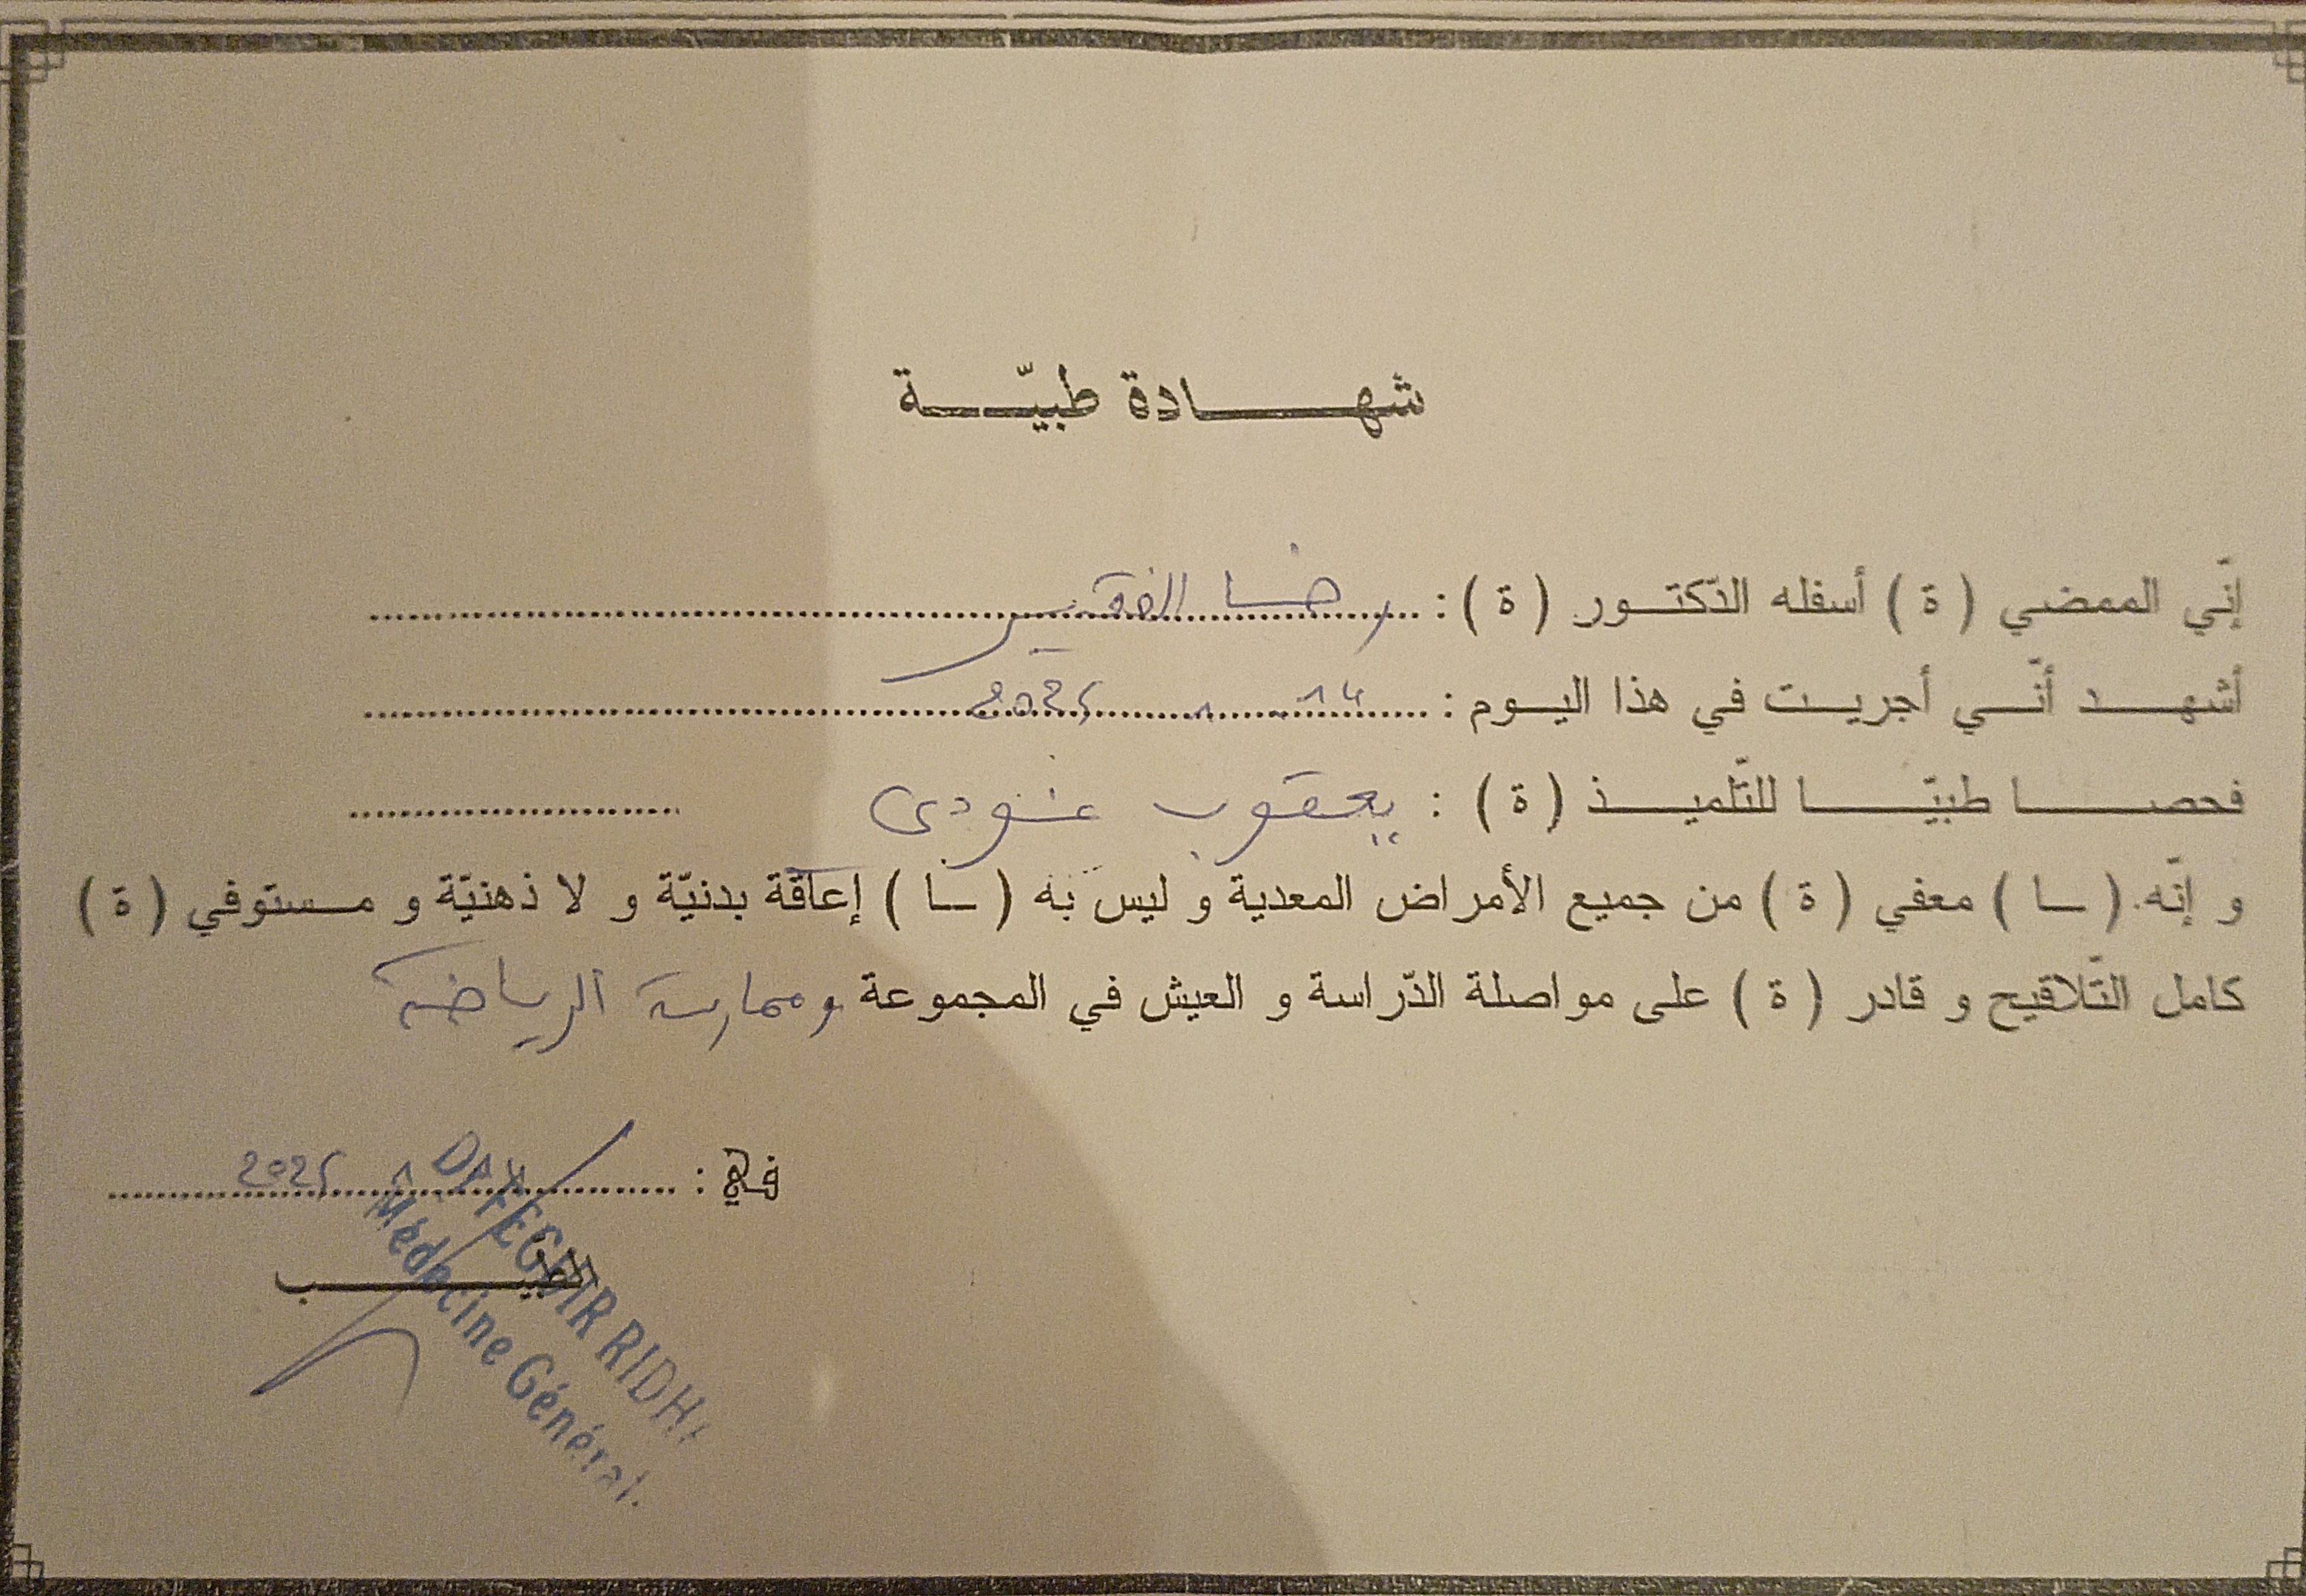 شهادة طبيّة
إنّي الممضي ( ة ) أسفله الدّكتور ( ة ) : رضا الفقير
أشهد أنّي أجريت في هذا اليوم : 14 2025
فحصا طبيّا للتّلميذ ( ة ) : يعقوب
و إنّه ( ـا ) معفي ( ة ) من جميع الأمراض المعدية و ليس به ( ـا ) إعاقة بدنيّة و لا ذهنيّة و مستوفي ( ة )
كامل التّلاقيح و قادر ( ة ) على مواصلة الدّراسة و العيش في المجموعة وممارسة الرياضة
في : 2025
الطبيب
RIDHA
Médecine Général.